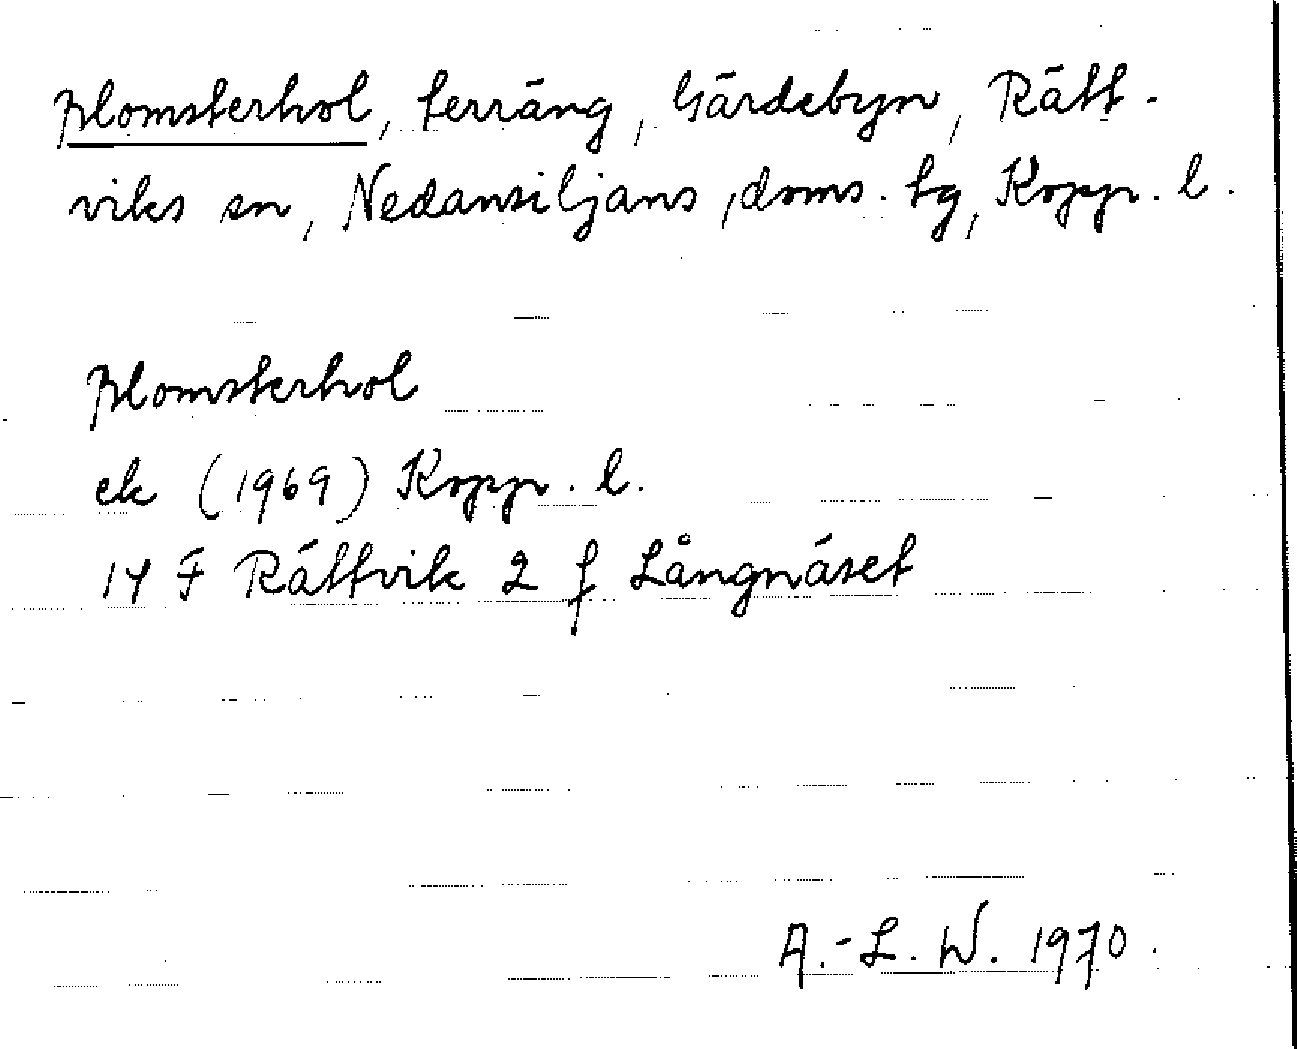 Blomsterhol, terräng, Gärdebyn, Rätt-
viks sn, Nedansiljans, doms. tg, Kopp. l.
Blomsterhol
ek (1969) Kopp. l.
14 F Rättvik 2 f Långnäset
A.-L. W. 1970.